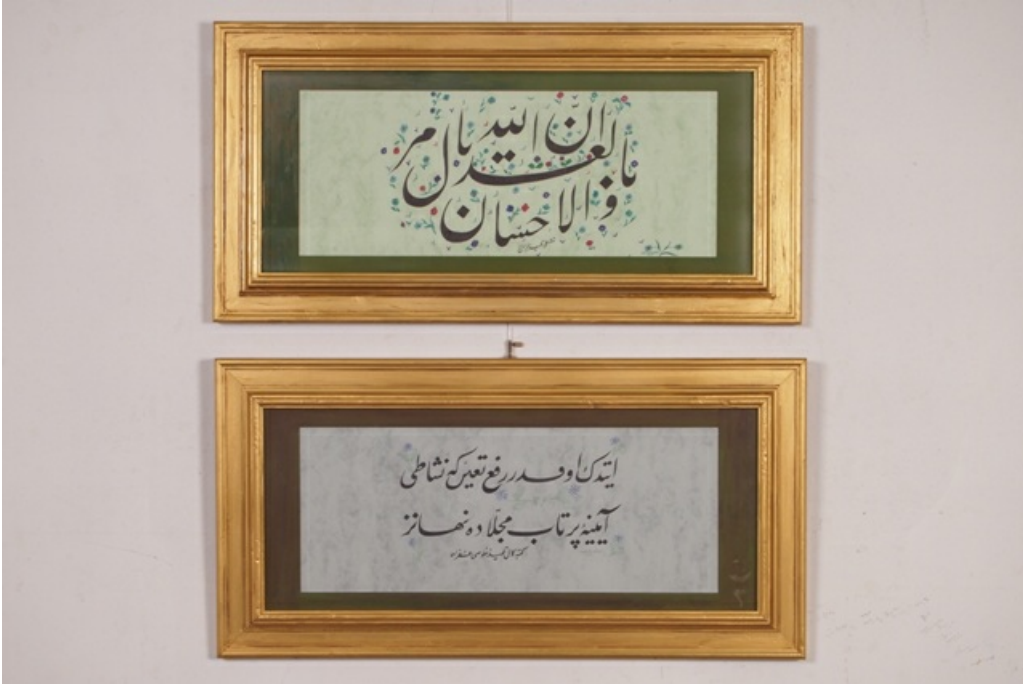 ان الله يأمر بالعدل والاحسان
ایتدك او قدر رفع تعین كه نشاطی
آیینهٔ پر تاب مجلّا ده نهانز